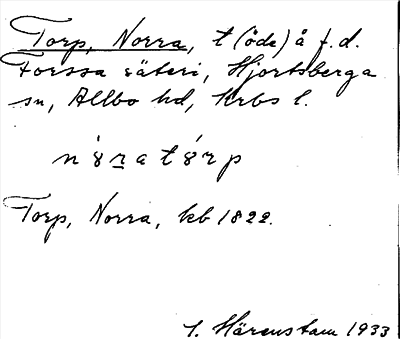 Torp, Norra, t (öde) å f.d.
Forssa säteri, Hjortsberga
sn, Allbo hd, Krbs l.
Torp, Norra, kb 1822.
I. Härenstam 1933